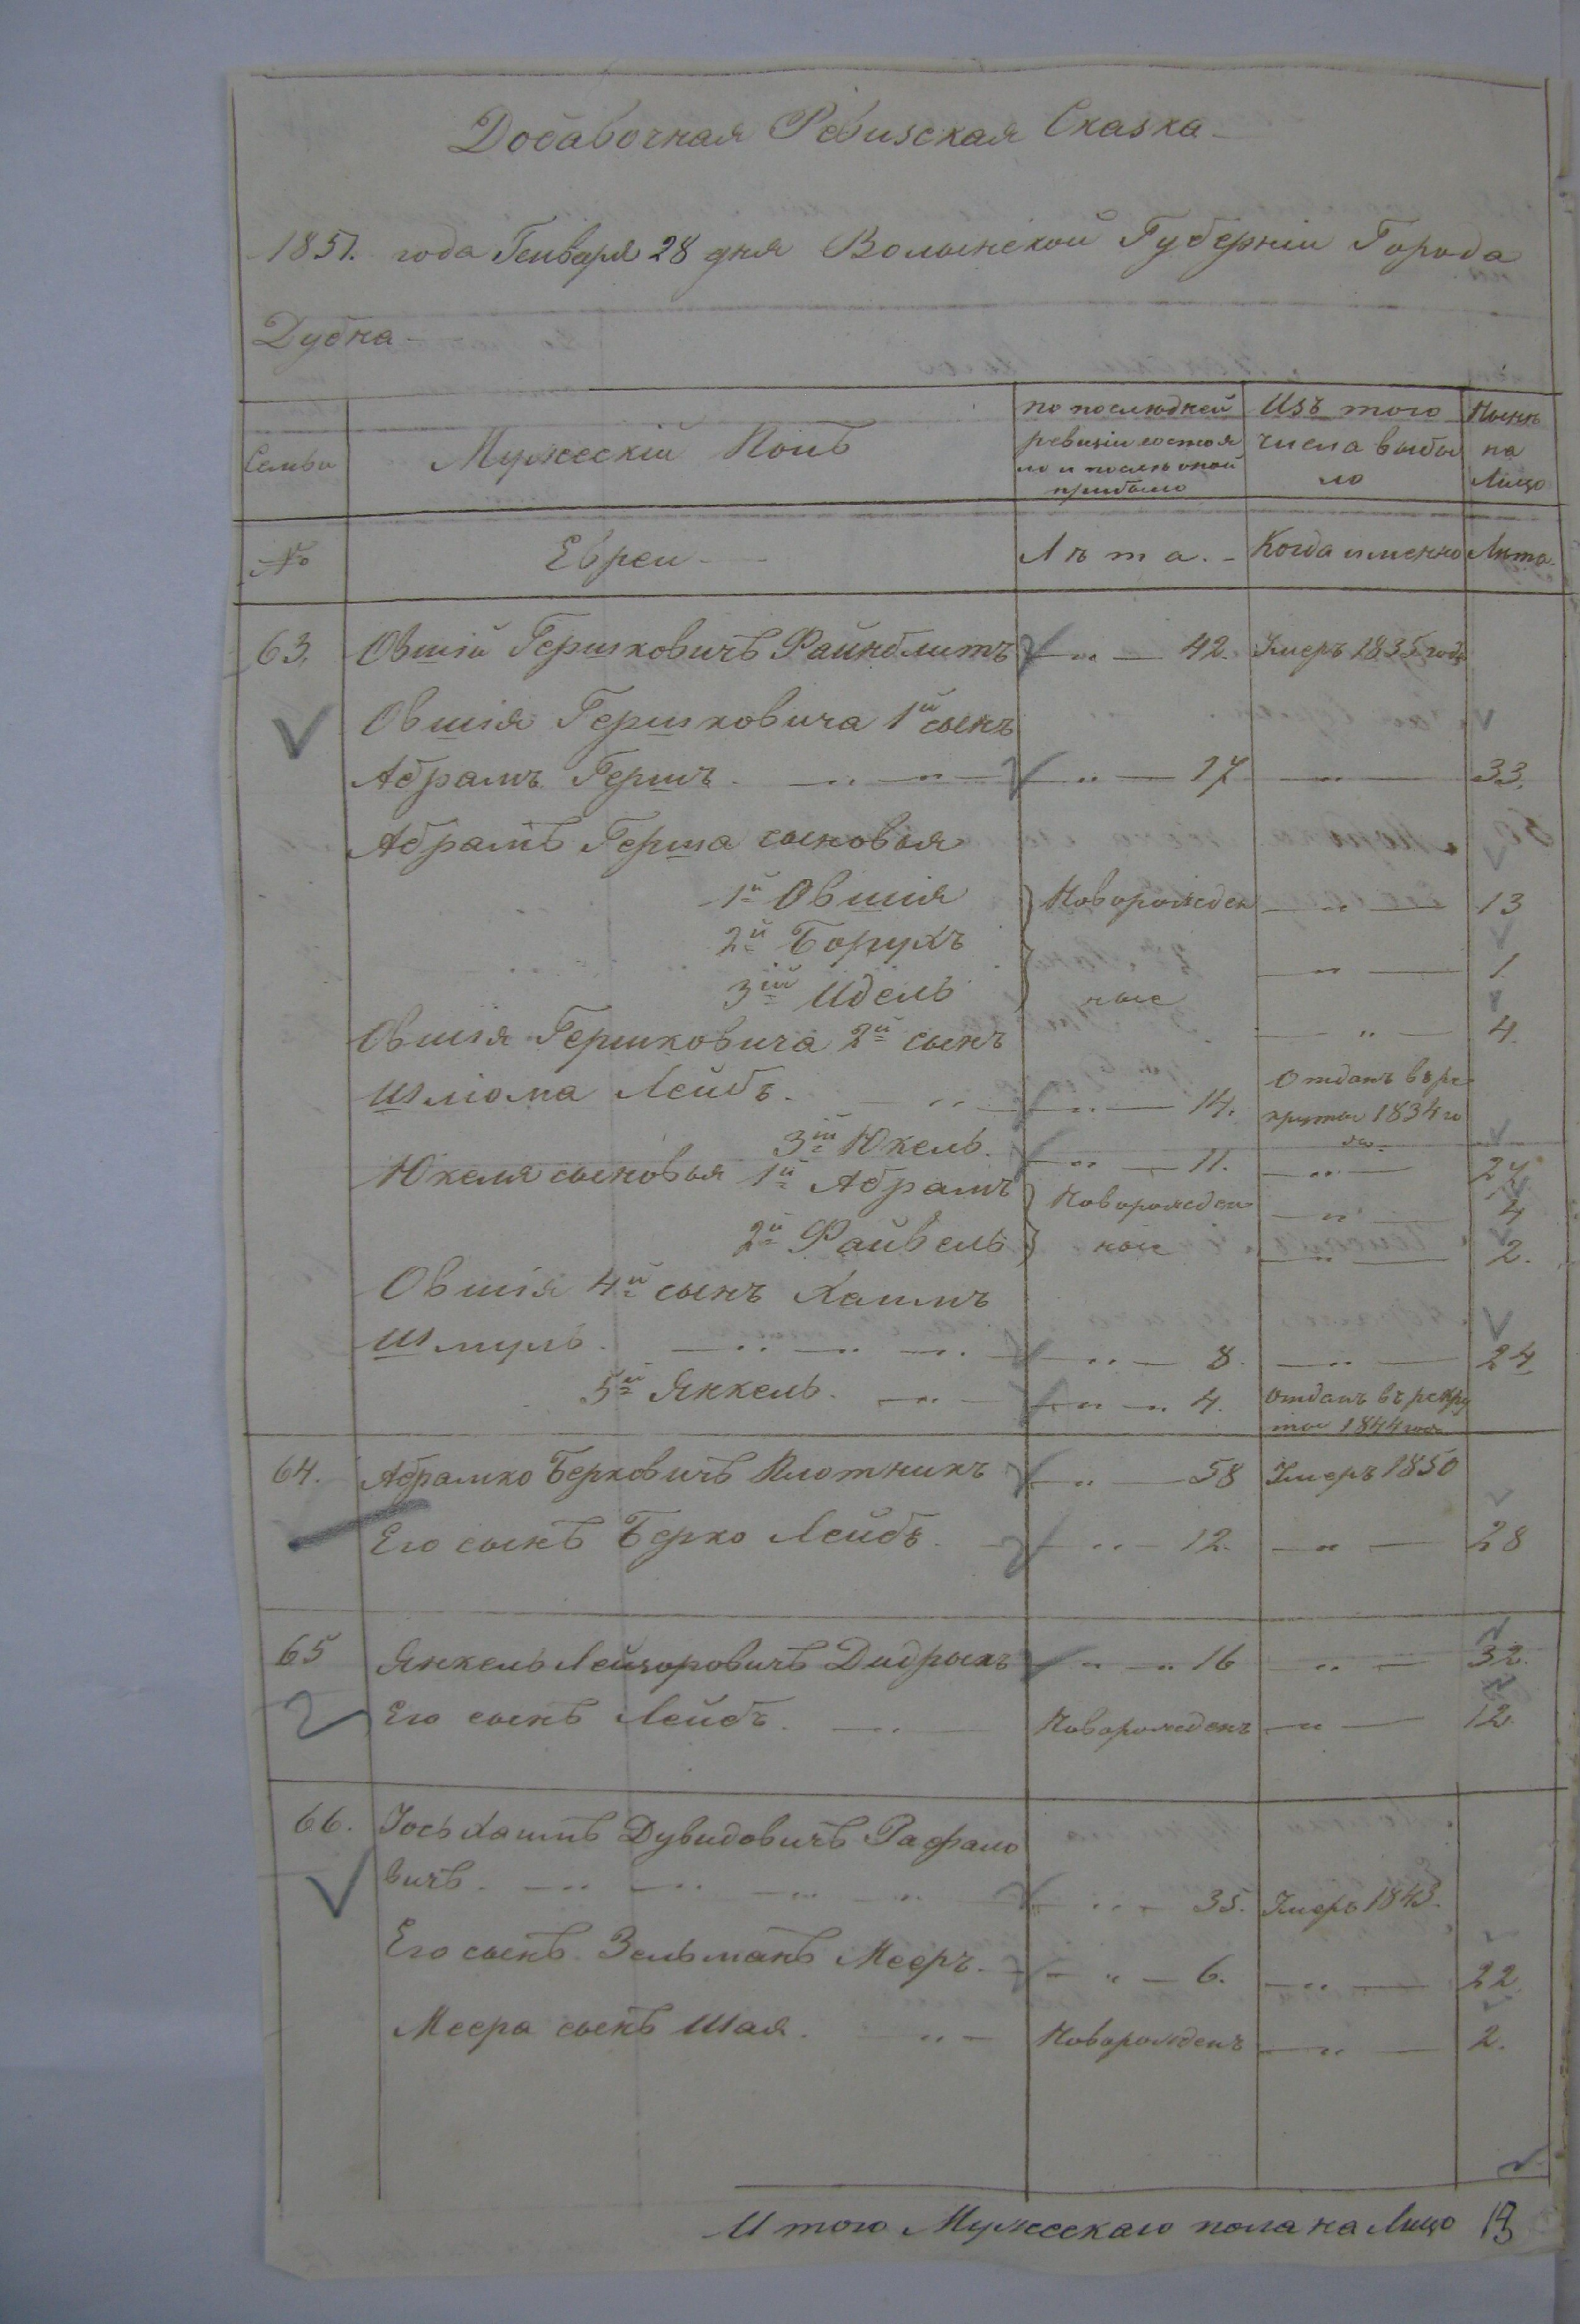 Добавочная Ревизская Сказка
1851. года Генваря 28 дня Волынской Губерніи Города
Дубна
Семьи
Мужескій Полъ
по послѣдней ревизіи состоя ло и послѣ оной прибыло
Изъ того числа выбы ло
Нынѣ на Лицо
№ Евреи Лѣта. Когда именно Лѣта.
63. Овшій Гершковичъ Файнблитъ 42. Умеръ 1835 года
Овшія Гершковича 1й сынъ
Абрамъ Гершъ. 17 33.
Абрамъ Герша сыновья
1й Овшія Новорожден 13
2й Борухъ 1
3ій Идель ные 4
Овшія Гершковича 2й сынъ
Шліома Лейбъ. 14. Отданъ въ ре круты 1834 го да
3ій Юкель. 11. 27
Юкеля сыновья 1й Абрамъ Новорожден 4
2й Файвель ные 2.
Овшія 4й сынъ Хаимъ
Шмуль. 8. 24
5й Янкель. 4. Отданъ въ рекру ты 1844 года
64. Абрамко Берковичъ Плотникъ 58 Умеръ 1850
Его сынъ Берко Лейбъ. 12. 28
65 Янкель Лейзоровичъ Дидрыкъ 16 32.
Его сынъ Лейбъ. Новорожденъ 12.
66. Іось Хаимъ Дувидовичъ Рафало
вичъ. 35. Умеръ 1843.
Его сынъ Зельманъ Мееръ. 6. 22.
Меера сынъ Шая. Новорожденъ 2.
Итого Мужескаго пола на Лицо 13